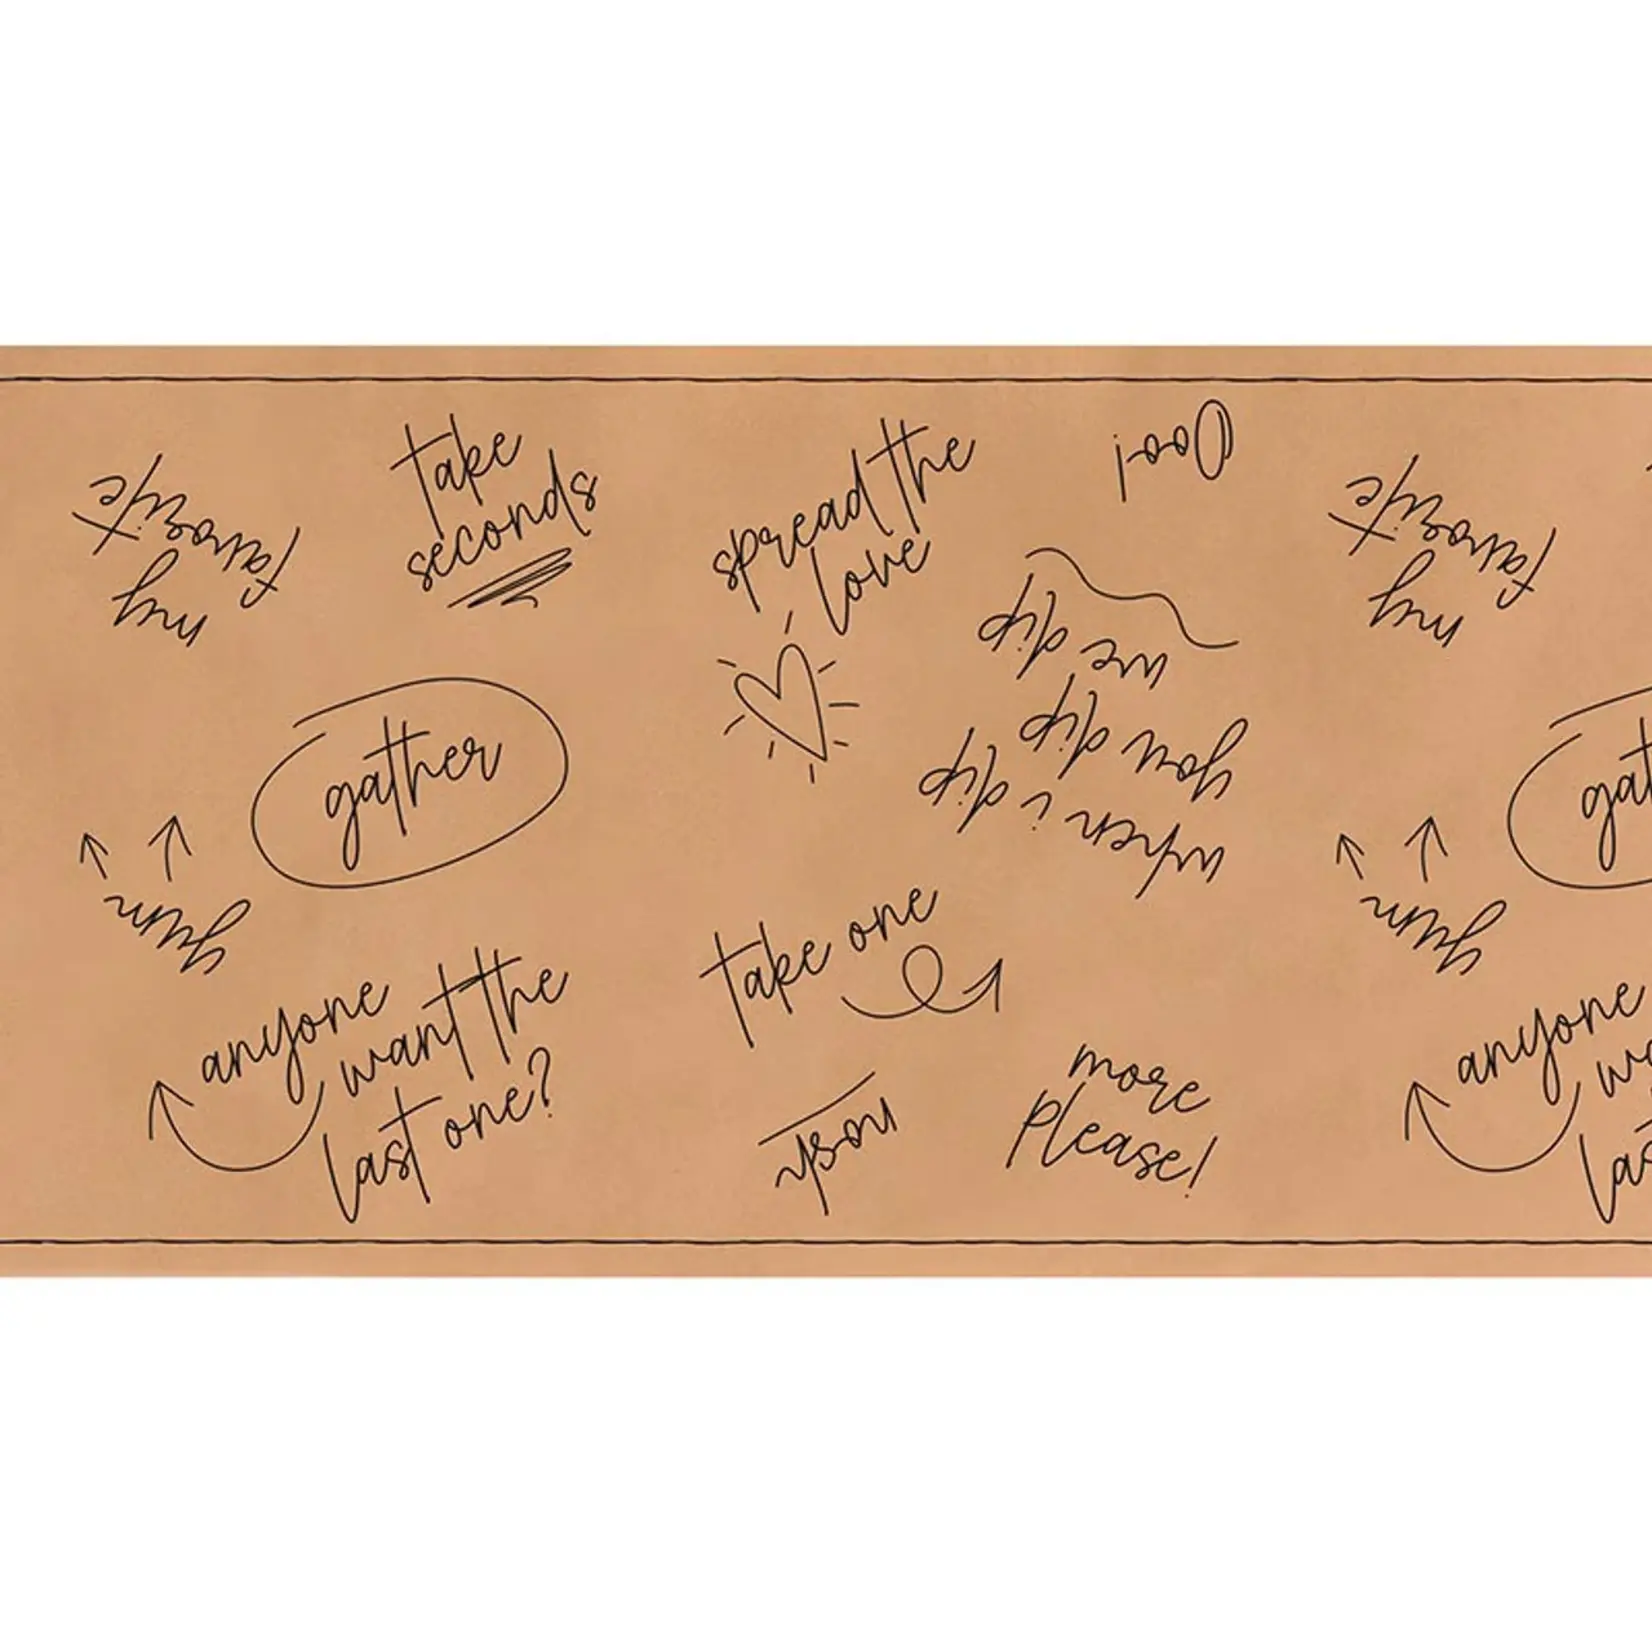 take
seconds
spread the
love
Ooo!
my
favorite
when i dip
you dip
we dip
my
favorite
gather
gat
yum
yum
take one
anyone
want the
last one?
anyone
wa
las
nosh
more
please!